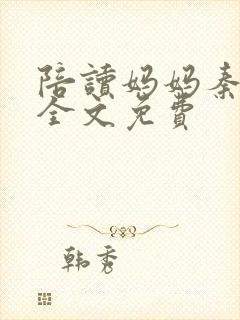 陪讀妈妈秦
全文免費
韩秀